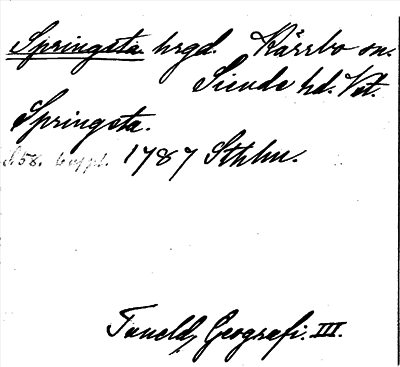 Springsta hrgd. Kärrbo sn.
Siende hd. Vst.
Springsta.
S. 58. uppl. 1787 Sthlm.
Tuneld, Geografi. III.